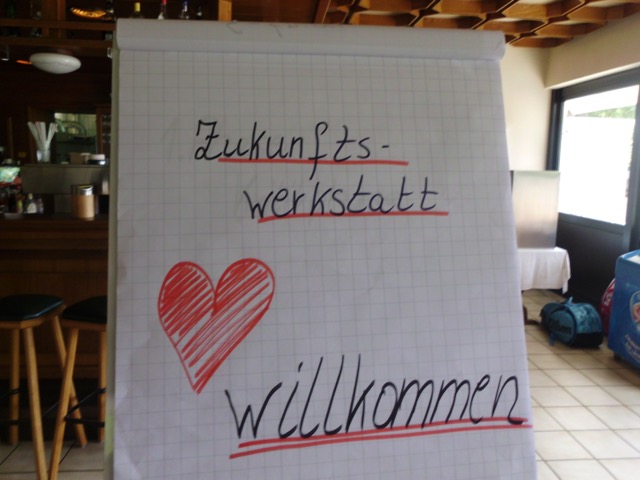 Zukunfts-
werkstatt
Willkommen